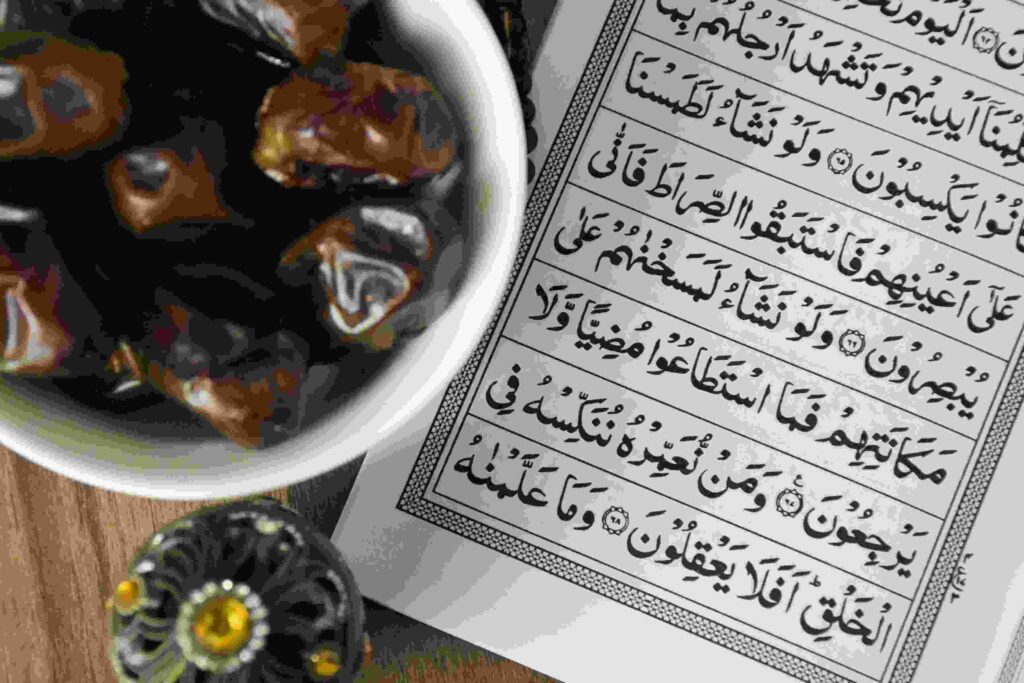 اَلْيَوْمَ
اَيْدِيْهِمْ وَتَشْهَدُ اَرْجُلُهُمْ بِمَا
انُوْا يَكْسِبُوْنَ ﴿٦٥﴾ وَلَوْ نَشَآءُ لَطَمَسْنَا
عَلٰٓى اَعْيُنِهِمْ فَاسْتَبَقُوا الصِّرَاطَ فَاَنّٰى
يُبْصِرُوْنَ ﴿٦٦﴾ وَلَوْ نَشَآءُ لَمَسَخْنٰهُمْ عَلٰى
مَكَانَتِهِمْ فَمَا اسْتَطَاعُوْا مُضِيًّا وَّلَا
يَرْجِعُوْنَ ﴿٦٧﴾ؑ وَمَنْ نُّعَمِّرْهُ نُنَكِّسْهُ فِى
الْخَلْقِؕ اَفَلَا يَعْقِلُوْنَ ﴿٦٨﴾ وَمَا عَلَّمْنٰهُ